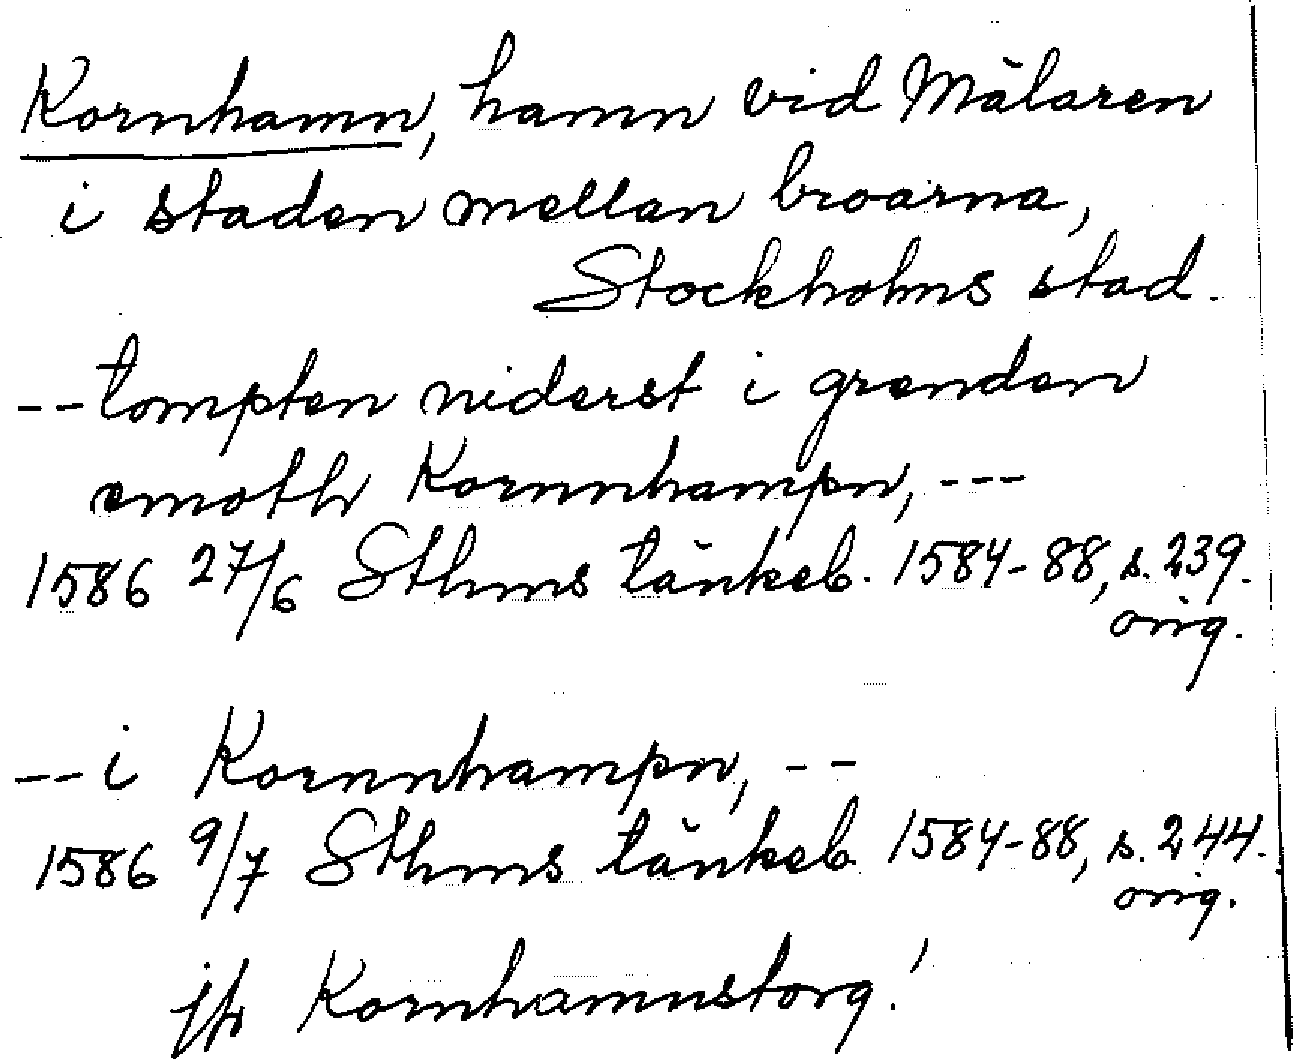 Kornhamn, hamn vid Mälaren
i staden mellan broarna,
Stockholms stad.
-- tompten niderst i grenden
emoth Kornnhampn, ---
1586 27/6 Sthms tänkeb. 1584-88, s. 239.
orig.
-- i Kornnhampn, --
1586 9/7 Sthms tänkeb. 1584-88, s. 244.
orig.
jfr Kornhamnstorg!